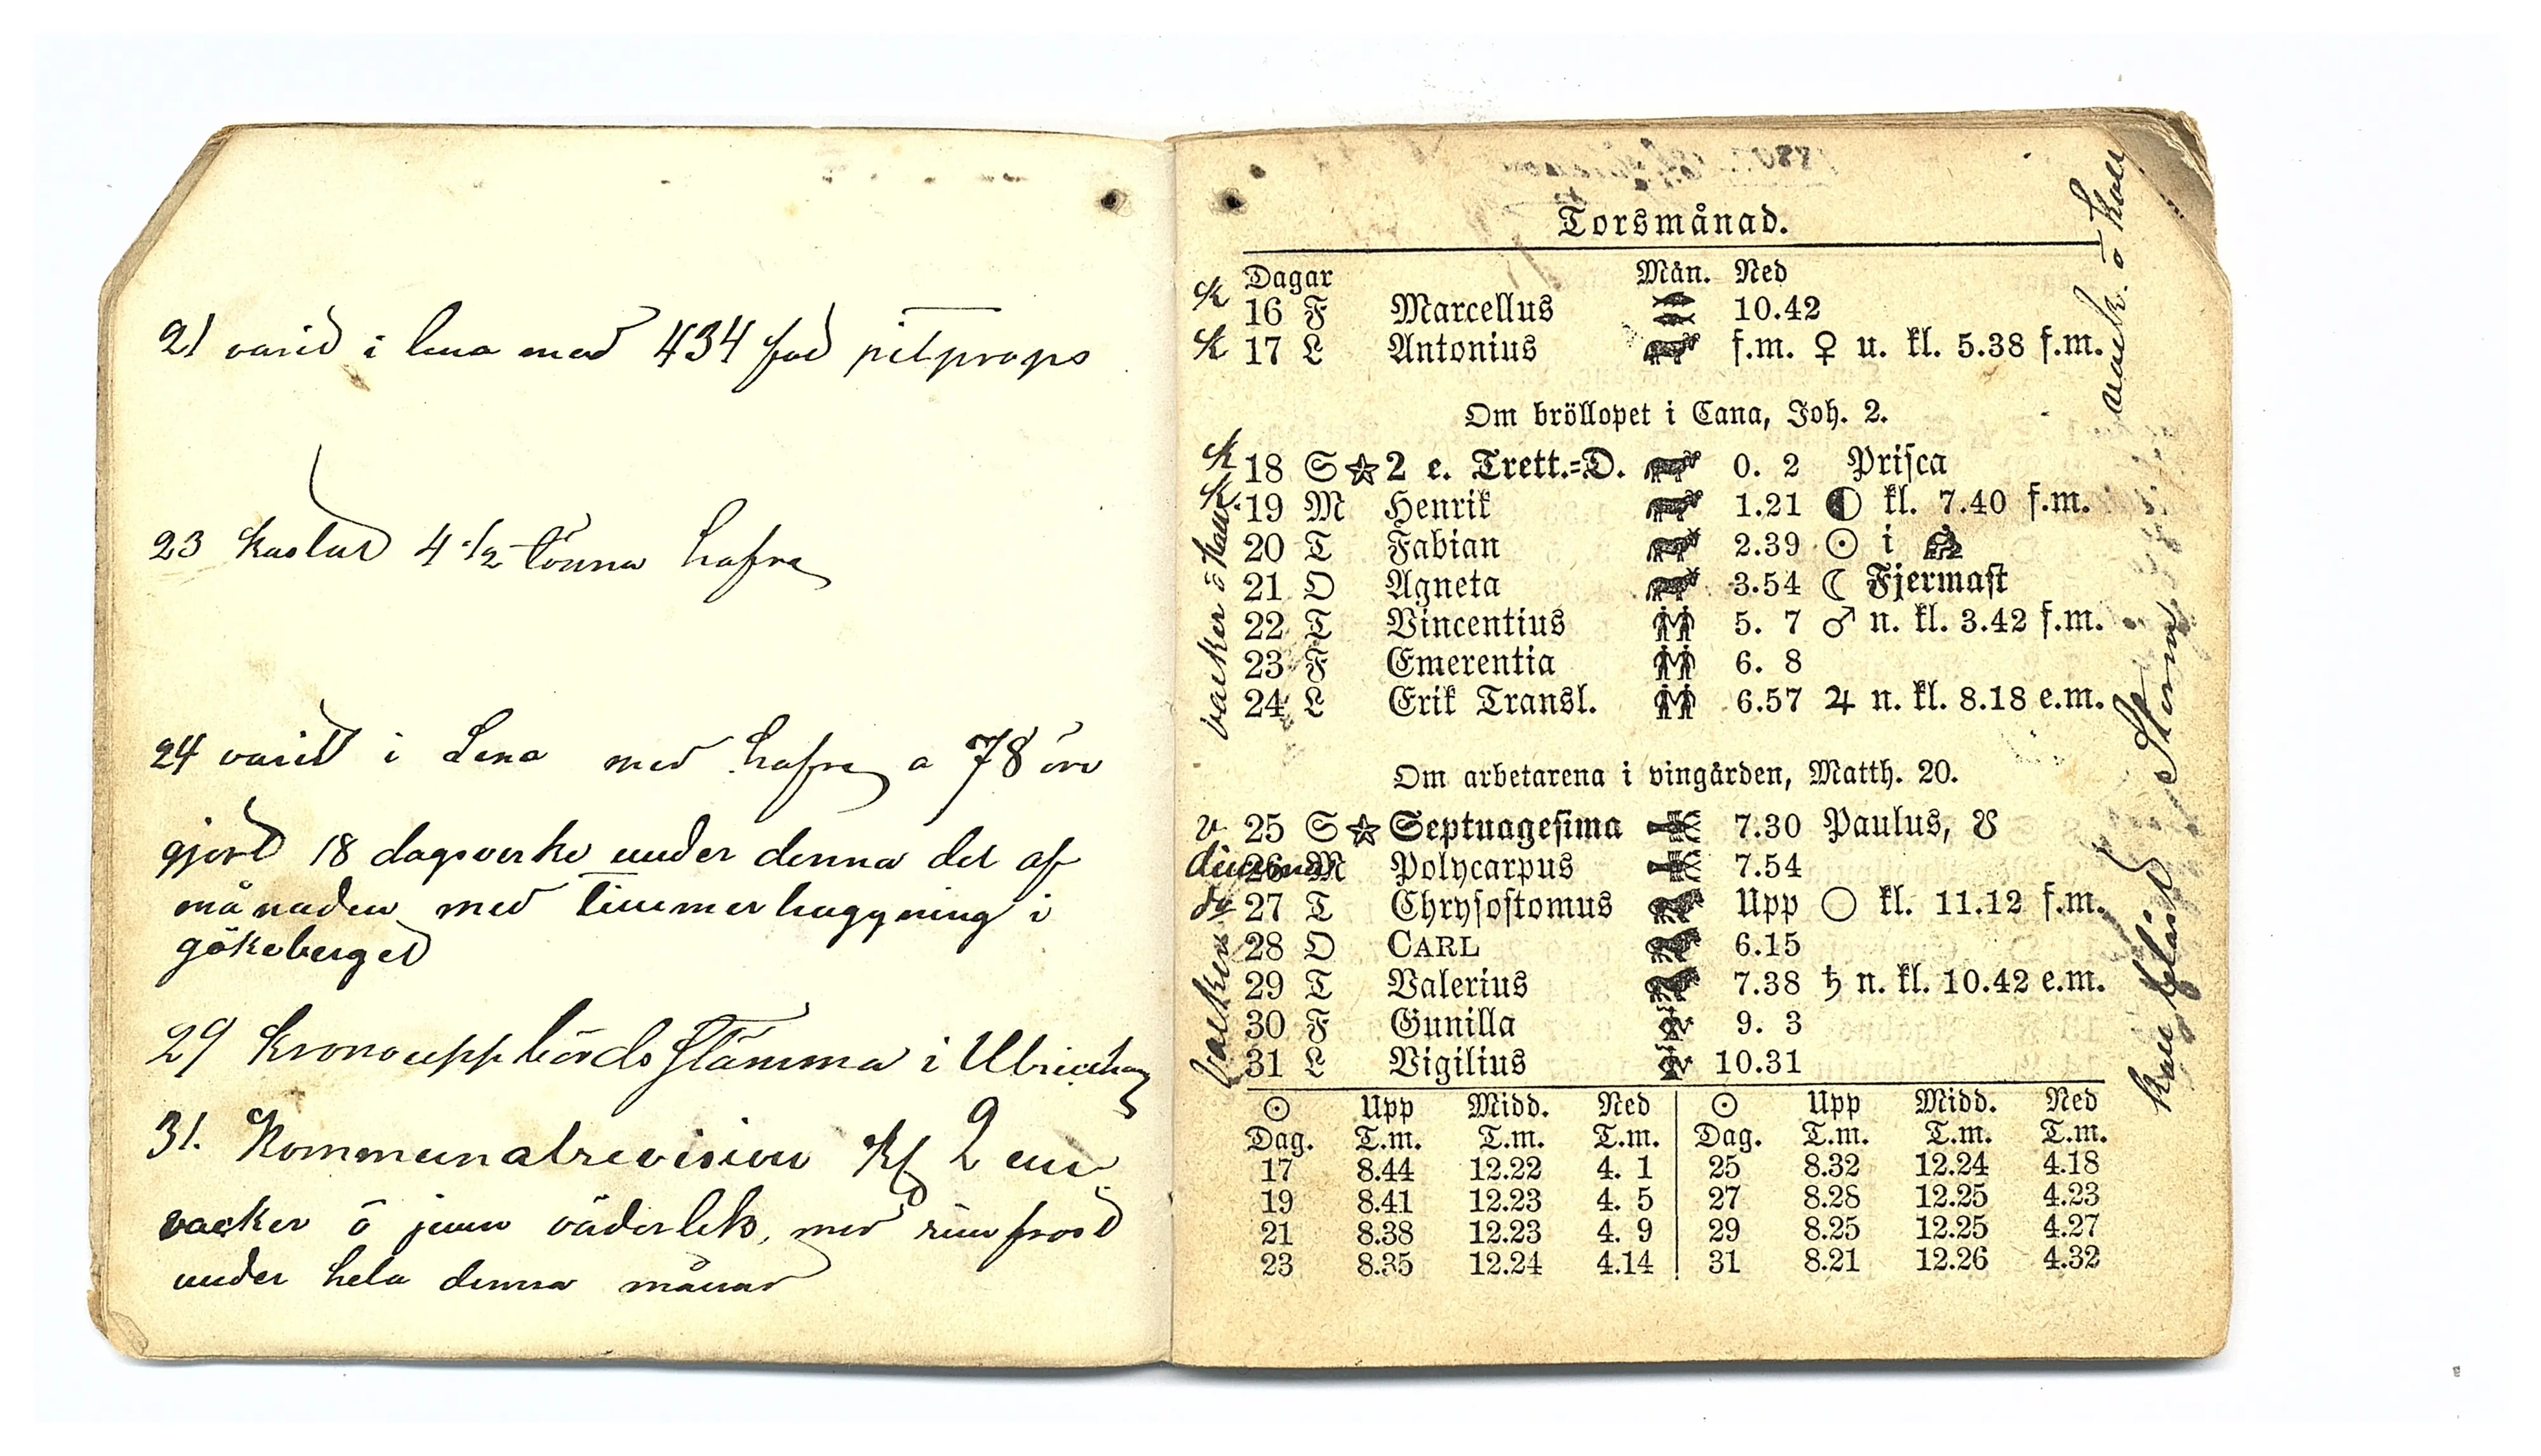 21 varid i lena med 434 fod pitprops
23 kastat 4 1/2 tönna hafre
24 varid i Lena med hafre a 78 öre
gjord 18 dagsverke under denna del af
månaden med timmerhuggning i
gökeberged
29 kronouppbördsstämma i Ulricehamn
31. Kommunalrevision Kl 2 em
vacker ö jemn väderlek, med rimfrost
under hela denna månad
Torsmånad.
Dagar Mån. Ned
k 16 F Marcellus 10.42
k 17 L Antonius f.m. ♀ u. kl. 5.38 f.m.
Om bröllopet i Cana, Joh. 2.
k 18 S ☆ 2 e. Trett.=D. 0. 2 Prisca
k. 19 M Henrik 1.21 ◐ kl. 7.40 f.m.
20 T Fabian 2.39 ☉ i ♒
21 O Agneta 3.54 ☾ Fjermast
22 T Vincentius 5. 7 ♂ n. kl. 3.42 f.m.
23 F Emerentia 6. 8
24 L Erik Transl. 6.57 ♃ n. kl. 8.18 e.m.
vacker ö
Om arbetarena i vingården, Matth. 20.
v 25 S ☆ Septuagesima 7.30 Paulus, ☋
26 M Polycarpus 7.54
27 T Chrysostomus Upp ○ kl. 11.12 f.m.
28 O CARL 6.15
29 T Valerius 7.38 ♄ n. kl. 10.42 e.m.
30 F Gunilla 9. 3
31 L Vigilius 10.31
vacker
☉ Upp Midd. Ned ☉ Upp Midd. Ned
Dag. T.m. T.m. T.m. Dag. T.m. T.m. T.m.
17 8.44 12.22 4. 1 25 8.32 12.24 4.18
19 8.41 12.23 4. 5 27 8.28 12.25 4.23
21 8.38 12.23 4. 9 29 8.25 12.25 4.27
23 8.35 12.24 4.14 31 8.21 12.26 4.32
Storm